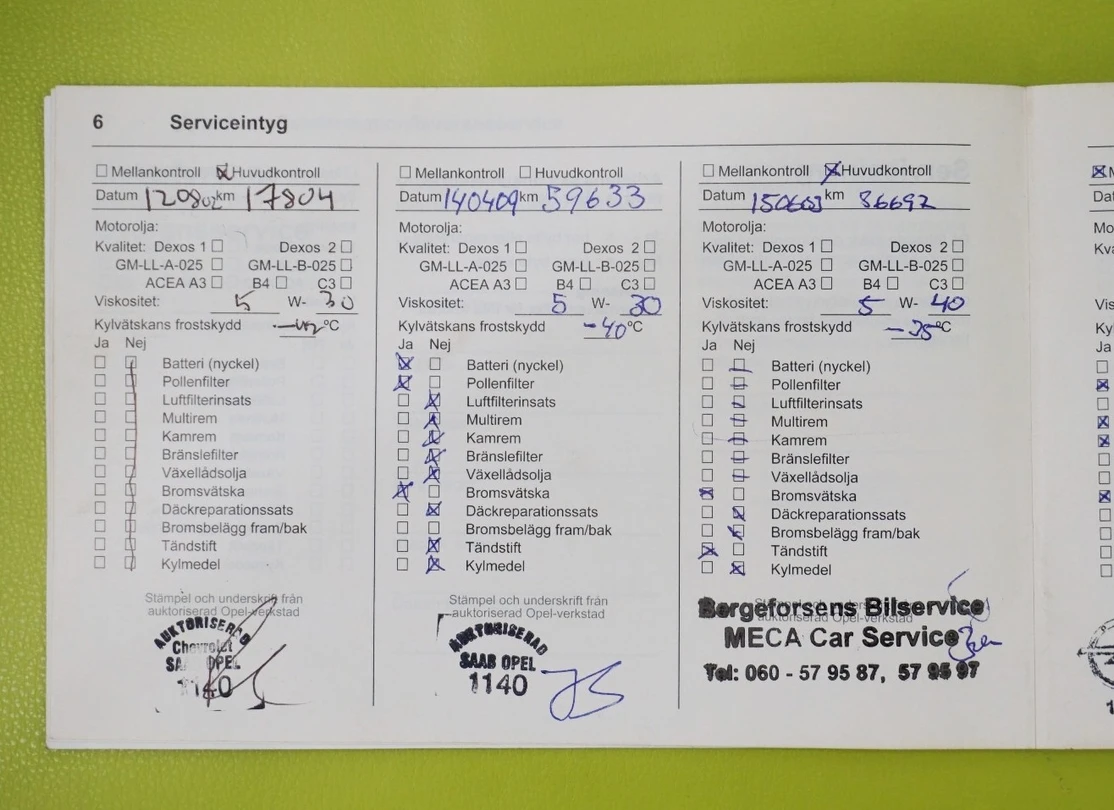 6 Serviceintyg
☐ Mellankontroll ☒ Huvudkontroll
Datum 120802 km 17804
Motorolja:
Kvalitet: Dexos 1 ☐ Dexos 2 ☐
GM-LL-A-025 ☐ GM-LL-B-025 ☐
ACEA A3 ☐ B4 ☐ C3 ☐
Viskositet: 5 W- 30
Kylvätskans frostskydd °C
Ja Nej
Batteri (nyckel)
Pollenfilter
Luftfilterinsats
Multirem
Kamrem
Bränslefilter
Växellådsolja
Bromsvätska
Däckreparationssats
Bromsbelägg fram/bak
Tändstift
Kylmedel
Stämpel och underskrift från
auktoriserad Opel-verkstad
AUKTORISERAD
Chevrolet
SAAB OPEL
1140
☐ Mellankontroll ☐ Huvudkontroll
Datum 140409 km 59633
Motorolja:
Kvalitet: Dexos 1 ☐ Dexos 2 ☐
GM-LL-A-025 ☐ GM-LL-B-025 ☐
ACEA A3 ☐ B4 ☐ C3 ☐
Viskositet: 5 W- 30
Kylvätskans frostskydd -40 °C
Ja Nej
☒ ☐ Batteri (nyckel)
☒ ☐ Pollenfilter
☐ ☒ Luftfilterinsats
☐ ☒ Multirem
☐ ☒ Kamrem
☐ ☒ Bränslefilter
☐ ☒ Växellådsolja
☒ ☐ Bromsvätska
☐ ☒ Däckreparationssats
☐ ☐ Bromsbelägg fram/bak
☐ ☒ Tändstift
☐ ☒ Kylmedel
Stämpel och underskrift från
auktoriserad Opel-verkstad
AUKTORISERAD
SAAB OPEL
1140
JS
☐ Mellankontroll ☒ Huvudkontroll
Datum 150603 km 86692
Motorolja:
Kvalitet: Dexos 1 ☐ Dexos 2 ☐
GM-LL-A-025 ☐ GM-LL-B-025 ☐
ACEA A3 ☐ B4 ☐ C3 ☐
Viskositet: 5 W- 40
Kylvätskans frostskydd -35 °C
Ja Nej
Batteri (nyckel)
Pollenfilter
Luftfilterinsats
Multirem
Kamrem
Bränslefilter
Växellådsolja
☒ ☐ Bromsvätska
☐ ☒ Däckreparationssats
☐ ☒ Bromsbelägg fram/bak
☒ ☐ Tändstift
☐ ☒ Kylmedel
auktoriserad Opel-verkstad
Bergeforsens Bilservice
MECA Car Service
Tel: 060 - 57 95 87, 57 95 97